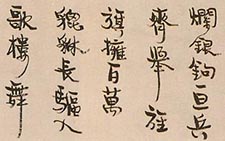 爛銀鉤一旦兵
齊舉旌
旗擁百萬
貔貅長驅入
歌樓舞